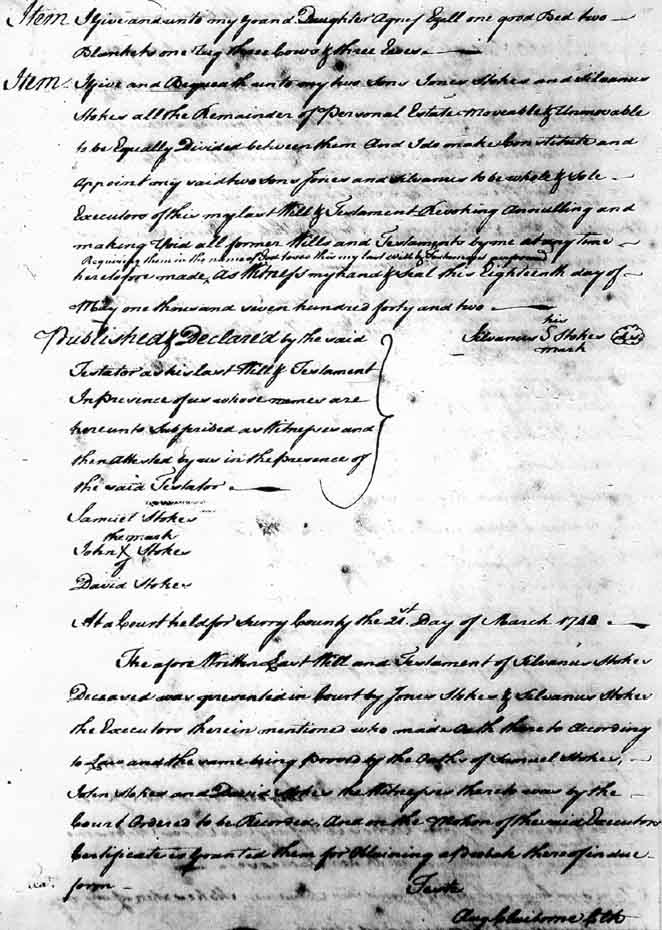 Item I Give and unto my Grand Daughter Agnes Ezell one good Bed two
Blankets one Rug three Cows & three Ewes.
Item I Give and Bequeath unto my two Sons Jones Stokes and Silvanus
Stokes all the Remainder of Personal Estate Moveable & Unmovable
to be Equally Divided between them And I do make Constitute and
Appoint my said two Sons Jones and Silvanus to be whole & Sole
Executors of this my last Will & Testament Revoking Annulling and
making Void all former Wills and Testaments by me at any time
Requiring them in the name of God to see this my last will & Testament
heretofore made, As Witness my hand & Seal this Eighteenth day of
May one thousand and seven hundred forty and two
his
Silvanus S Stokes
mark
Published & Declared by the said
Testator as his last Will & Testament
In Presence of us whose names are
hereunto Subscribed as Witnesses and
then Attested by us in the Presence of
the said Testator
Samuel Stokes
the mark
John X Stokes
of
David Stokes
At a Court held for Surry County the 21st. Day of March 1748
The afore Written Last Will and Testament of Silvanus Stokes
Deceased was presented in Court by Jones Stokes & Silvanus Stokes
the Executors therein mentioned who made Oath thereto According
to Law and the same being Proved by the Oaths of Samuel Stokes,
John Stokes and David Stokes the Witnesses thereto was by the
Court Ordered to be Recorded, And on the Motion of the said Executors
Certificate is Granted them for Obtaining a Probate thereof in due
form
Teste
Aug. Claiborne Cl Ck